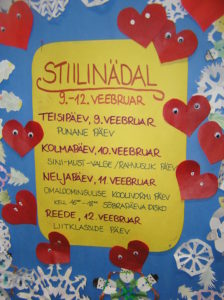 STIILINÄDAL
9.-12. VEEBRUAR
TEISIPÄEV, 9. VEEBRUAR
PUNANE PÄEV
KOLMAPÄEV, 10. VEEBRUAR
SINI-MUST-VALGE / RAHVUSLIK PÄEV
NELJAPÄEV, 11. VEEBRUAR
OMALOOMINGULISE KOOLIVORMI PÄEV
KELL 16⁰⁰-18⁰⁰ SÕBRAPÄEVA DISKO
REEDE, 12. VEEBRUAR
LIITKLASSIDE PÄEV